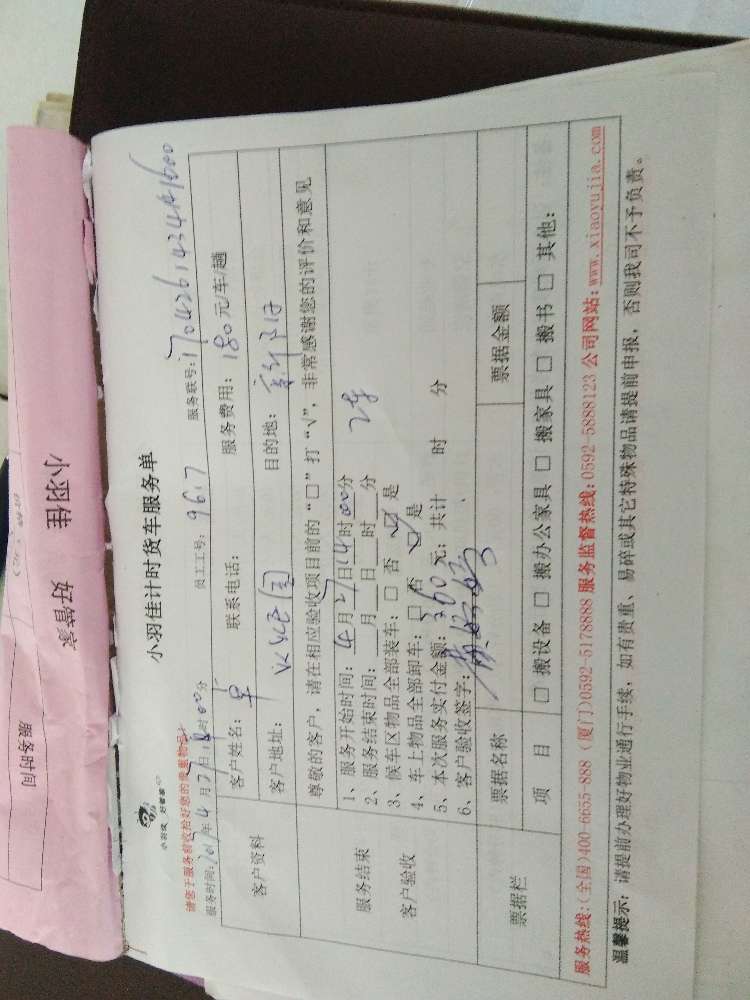 小羽佳
好管家
服务时间
小羽佳 好管家
小羽佳计时货车服务单
请您于服务前收拾好您的贵重物品!
服务时间: 2017年4月27日 时00分 员工工号: 9617 服务联号: 170426143441600
客户资料
客户姓名: 联系电话: 服务费用: 180元/车/趟
客户地址: 目的地:
服务结束
客户验收
尊敬的客户, 请在相应验收项目前的“□”打“√”, 非常感谢您的评价和意见
1、服务开始时间: 4月27日14时00分
2、服务结束时间: 月 日 时 分
3、候车区物品全部装车: □ 否 ☑ 是
4、车上物品全部卸车: □ 否 ☑ 是
5、本次服务实付金额: 360元; 共计 时 分
6、客户验收签字:
票据栏
票据名称 票据金额
项 目 □ 搬设备 □ 搬办公家具 □ 搬家具 □ 搬书 □ 其他:
服务热线:(全国)400-6655-888 (厦门)0592-5178888 服务监督热线:0592-5888123 公司网站:www.xiaoyujia.com
温馨提示: 请提前办理好物业通行手续, 如有贵重、易碎或其它特殊物品请提前申报, 否则我司不予负责。